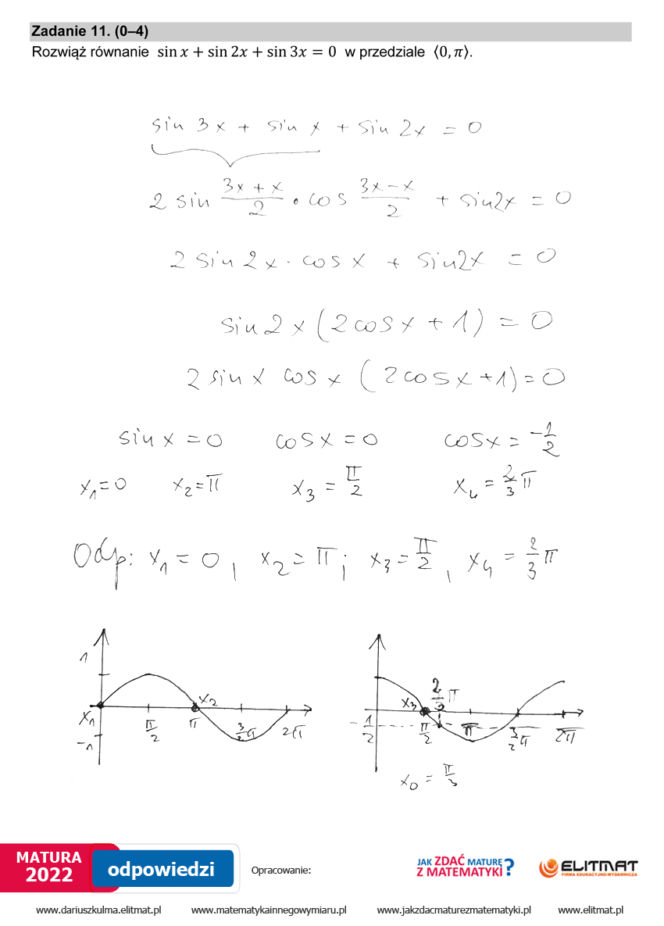 Zadanie 11. (0–4)
Rozwiąż równanie sin x + sin 2x + sin 3x = 0 w przedziale ⟨0, π⟩.
sin 3x + sin x + sin 2x = 0
2 sin (3x + x)/2 · cos (3x − x)/2 + sin2x = 0
2 sin 2x · cos x + sin2x = 0
sin 2x (2cosx + 1) = 0
2 sin x cos x (2cosx + 1) = 0
sin x = 0 cosx = 0 cosx = −1/2
x₁ = 0 x₂ = π x₃ = π/2 x₄ = 2/3 π
Odp: x₁ = 0, x₂ = π; x₃ = π/2, x₄ = 2/3 π
1 x₂ x₁ π/2 π 3/2 π 2π −1
x₃ 2/3 π −1/2 π/2 π 3/2 π 2π
x₀ = π/3
MATURA 2022
odpowiedzi
Opracowanie:
JAK ZDAĆ MATURĘ Z MATEMATYKI?
ELITMAT
FIRMA EDUKACYJNO-WYDAWNICZA
www.dariuszkulma.elitmat.pl www.matematykainnegowymiaru.pl www.jakzdacmaturezmatematyki.pl www.elitmat.pl